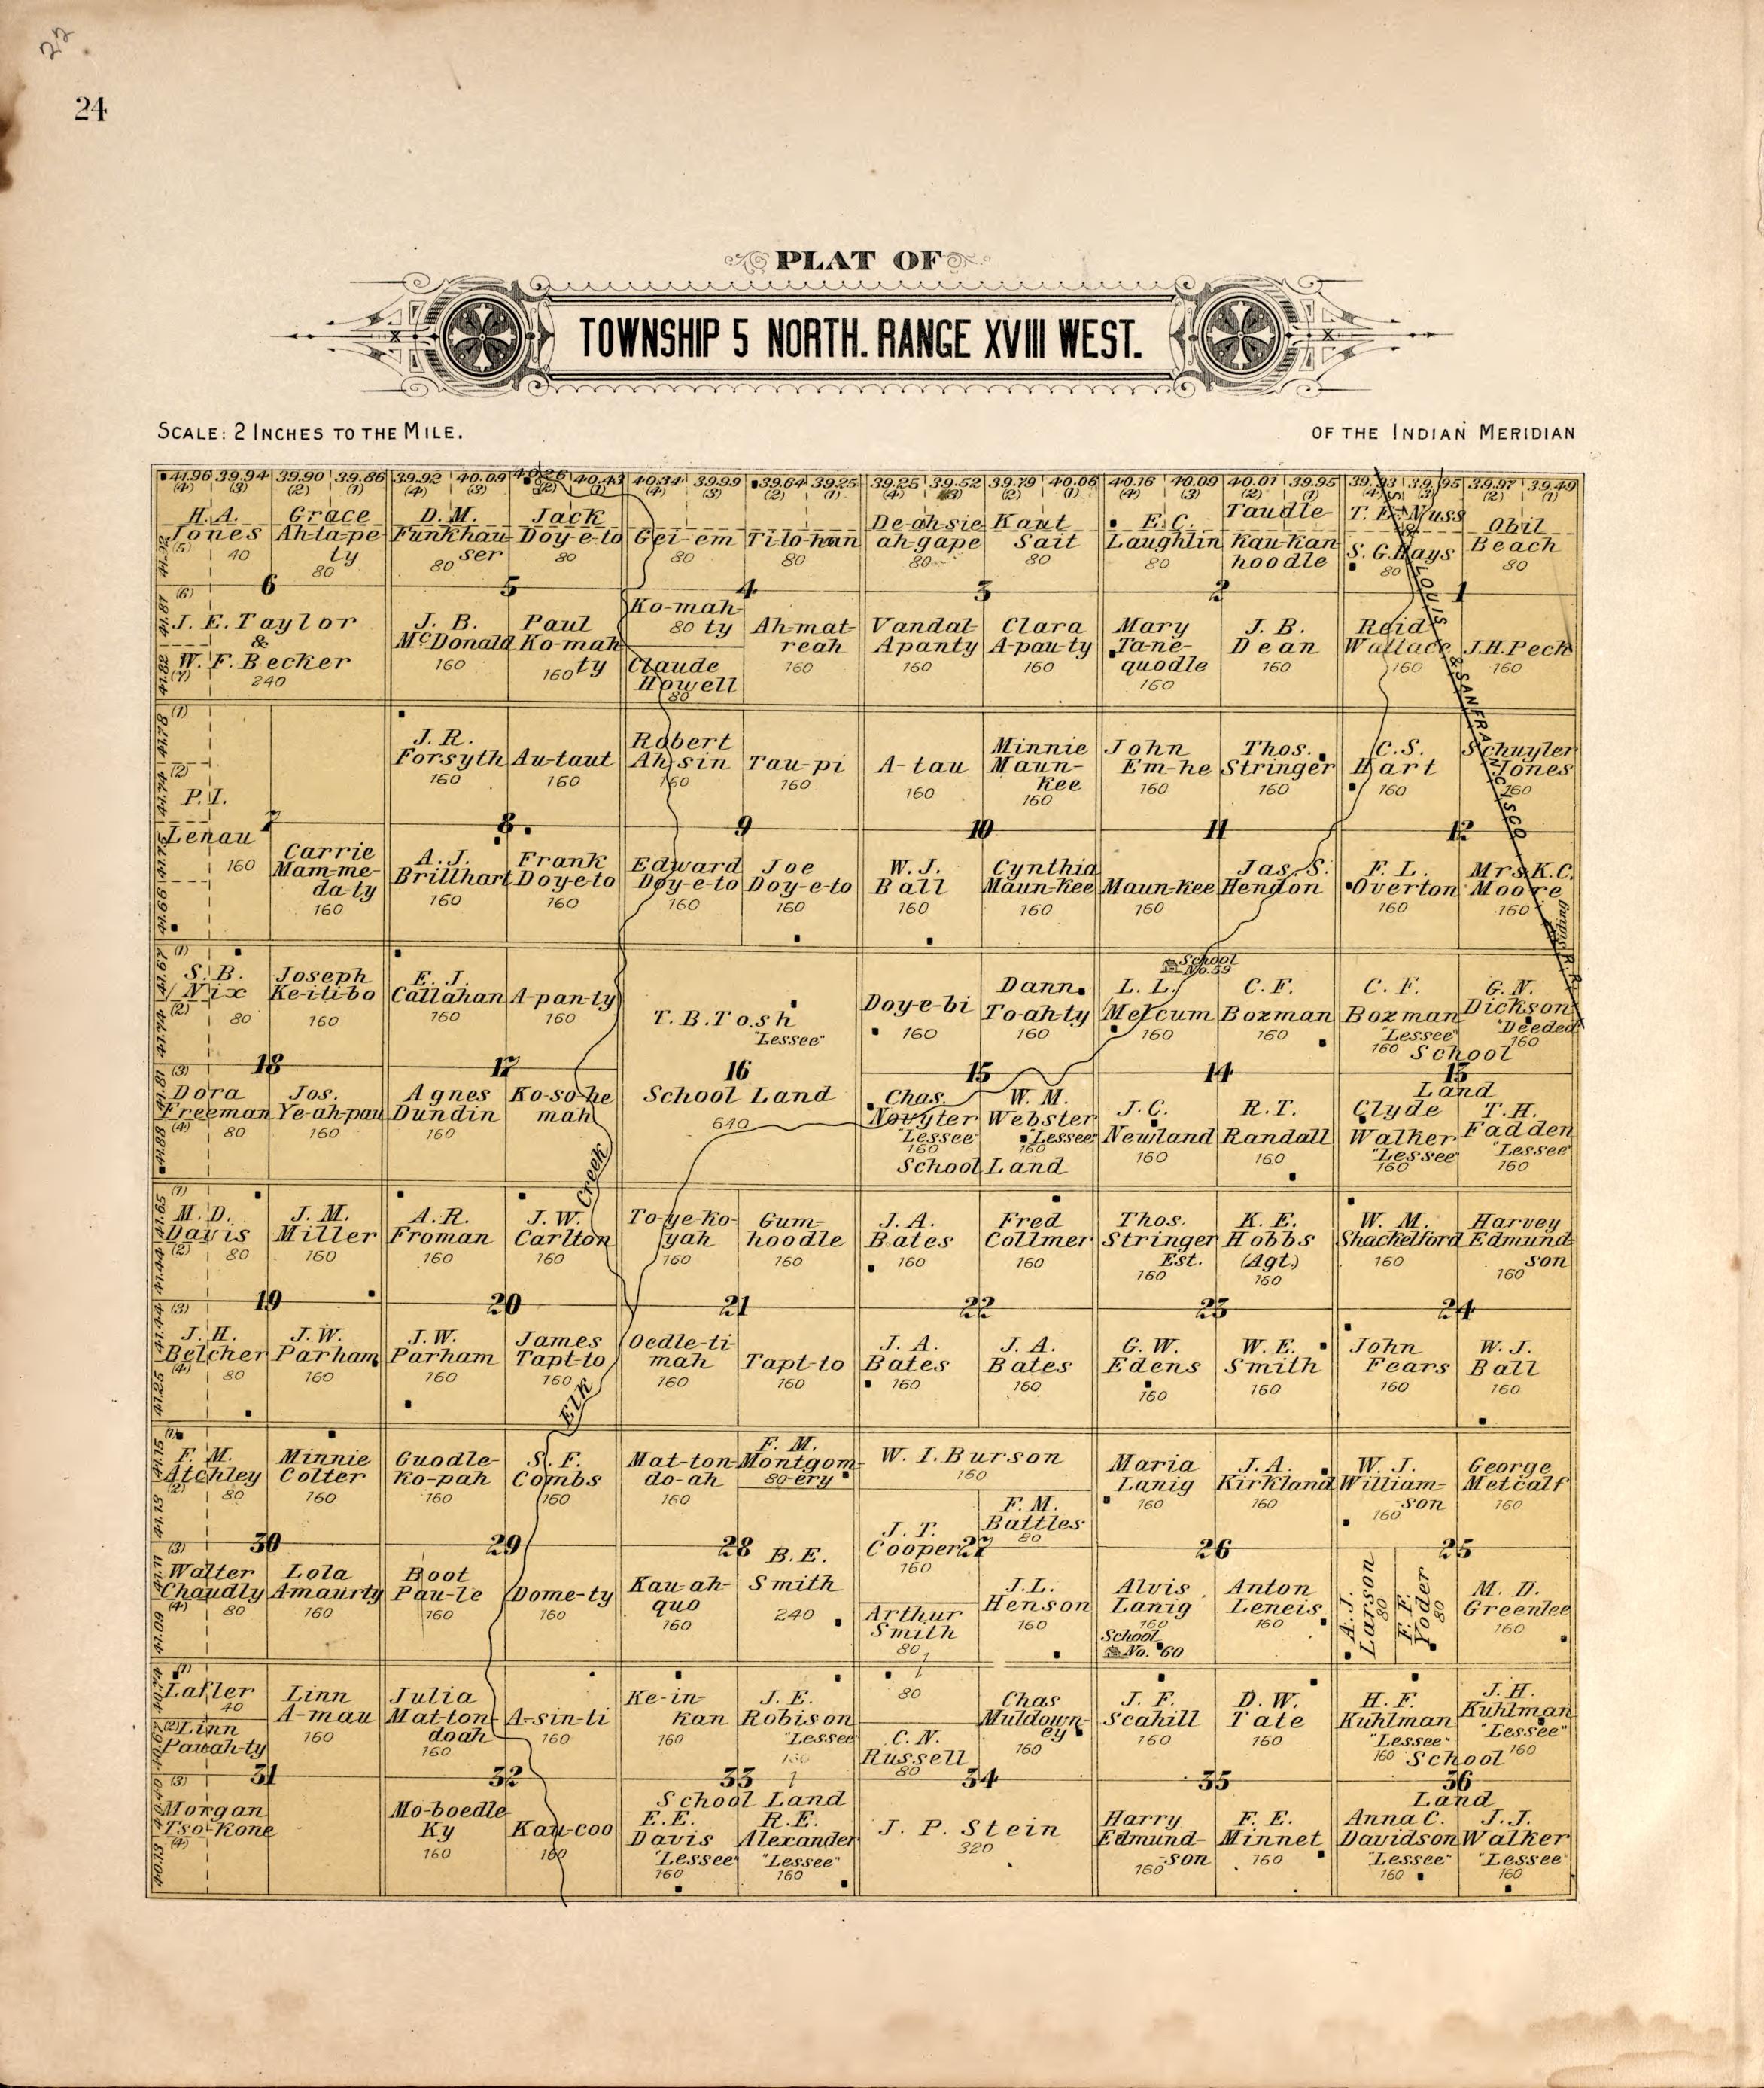 22
24
PLAT OF
TOWNSHIP 5 NORTH. RANGE XVIII WEST.
SCALE: 2 INCHES TO THE MILE.
OF THE INDIAN MERIDIAN
41.96 39.94 39.90 39.86 39.92 40.09 40.26 40.43 40.34 39.99 39.64 39.25 39.25 39.52 39.79 40.06 40.16 40.09 40.01 39.95 39.93 39.95 39.97 39.49
(4) (3) (2) (1) (4) (3) (2) (1) (4) (3) (2) (1) (4) (3) (2) (1) (4) (3) (2) (1) (4) (3) (2) (1)
H. A.
Jones
(5) 40
Grace
Ah-ta-pe
ty
80
D. M.
Funkhau
ser
80
Jack
Doy-e-to
80
Gei-em
80
Ti-to-han
80
De-ah-sie
ah-gape
80
Kaut
Sait
80
E. C.
Laughlin
80
Taudle-
Kau-kan
hoodle
T. E. Nuss
S. G. Hays
80
Obil
Beach
80
6 5 4 3 2 1
(6)
41.87
J. E. Taylor
&
W. F. Becker
240
41.82
(7)
J. B.
McDonald
160
Paul
Ko-mah
ty
160
Ko-mah-
80 ty
Claude
Howell
80
Ah-mat-
reah
160
Vandal
Apanty
160
Clara
A-pau-ty
160
Mary
Tane-
quodle
160
J. B.
Dean
160
Reid
Wallace
160
J.H. Peck
160
ST. LOUIS & SAN FRANCISCO
R. R.
Siding
(1)
41.78
(2)
41.74
P. I.
Lenau
160
J. R.
Forsyth
160
Au-taut
160
Robert
Ah-sin
160
Tau-pi
160
A-tau
160
Minnie
Maun-
kee
160
John
Em-he
160
Thos.
Stringer
160
C. S.
Hart
160
Schuyler
Jones
160
7 8 9 10 11 12
41.66
Carrie
Mam-me-
da-ty
160
A. J.
Brillhart
160
Frank
Doy-e-to
160
Edward
Doy-e-to
160
Joe
Doy-e-to
160
W. J.
Ball
160
Cynthia
Maun-kee
160
Maun-kee
160
Jas. S.
Hendon
F. L.
Overton
160
Mrs. K.C.
Moore
160
(1)
41.67
S. B.
Nix
(2)
80
41.74
Joseph
Ke-i-ti-bo
160
E. J.
Callahan
160
A-pan-ty
160
T. B. Tosh
"Lessee"
Doy-e-bi
160
Dann.
To-ah-ty
160
School
No. 59
L. L.
Melcum
160
C. F.
Bozman
160
C. F.
Bozman
"Lessee"
160
G. N.
Dickson
"Deeded"
160
School
18 17 16 15 14 13
Land
(3)
41.81
Dora
Freeman
(4)
80
41.88
Jos.
Ye-ah-pau
160
Agnes
Dundin
160
Ko-so-he
mah
School Land
640
Chas.
Novyter
"Lessee"
160
W. M.
Webster
"Lessee"
160
School Land
J. C.
Newland
160
R. T.
Randall
160
Clyde
Walker
"Lessee"
160
T. H.
Fadden
"Lessee"
160
Creek
(1)
41.65
M. D.
Davis
(2)
80
41.44
J. M.
Miller
160
A. R.
Froman
160
J. W.
Carlton
160
To-ye-ko-
yah
160
Gum-
hoodle
160
J. A.
Bates
160
Fred
Collmer
160
Thos.
Stringer
Est.
160
K. E.
Hobbs
(Agt.)
160
W. M.
Shackelford
160
Harvey
Edmund
son
160
19 20 21 22 23 24
(3)
41.44
J. H.
Belcher
(4)
80
41.25
J. W.
Parham
160
J. W.
Parham
160
James
Tapt-to
160
Oedle-ti-
mah
160
Tapt-to
160
J. A.
Bates
160
J. A.
Bates
160
G. W.
Edens
160
W. E.
Smith
160
John
Fears
160
W. J.
Ball
160
Elk
(1)
41.15
F. M.
Atchley
(2)
80
Minnie
Colter
160
Guodle-
ko-pah
160
S. F.
Combs
160
Mat-ton-
do-ah
160
F. M.
Montgom-
80 ery
W. I. Burson
160
Maria
Lanig
160
J. A.
Kirkland
160
W. J.
William-
son
160
George
Metcalf
160
F. M.
Battles
80
30 29 28 27 26 25
(3)
Walter
Chaudly
(4)
80
Lola
Amaurty
160
Boot
Pau-le
160
Dome-ty
160
Kau-ah-
quo
160
B. E.
Smith
240
J. T.
Cooper
160
Arthur
Smith
80
J. L.
Henson
160
Alvis
Lanig
160
School
No. 60
Anton
Leneis
160
A. J.
Larson
80
F. F.
Yoder
80
M. D.
Greenlee
160
(1)
Lafler
40
(2) Linn
Pauah-ty
Linn
A-mau
160
Julia
Mat-ton-
doah
160
A-sin-ti
160
Ke-in-
kan
160
J. E.
Robison
"Lessee"
160
80
C. N.
Russell
80
Chas
Muldown-
ey
160
J. F.
Scahill
160
D. W.
Tate
160
H. F.
Kuhlman
"Lessee"
160
J. H.
Kuhlman
"Lessee"
160
School
31 32 33 34 35 36
Land
(3)
Morgan
Tso-kone
(4)
40.13
Mo-boedle-
Ky
160
Kau-coo
160
School Land
E. E.
Davis
"Lessee"
160
R. E.
Alexander
"Lessee"
160
J. P. Stein
320
Harry
Edmund-
son
160
F. E.
Minnet
160
Anna C.
Davidson
"Lessee"
160
J. J.
Walker
"Lessee"
160